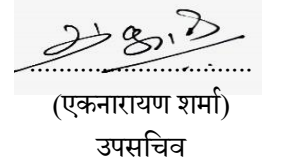 (एकनारायण शर्मा)
उपसचिव